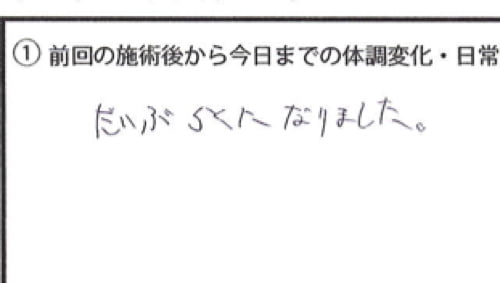 ① 前回の施術後から今日までの体調変化・日常
だいぶ らくに なりました。